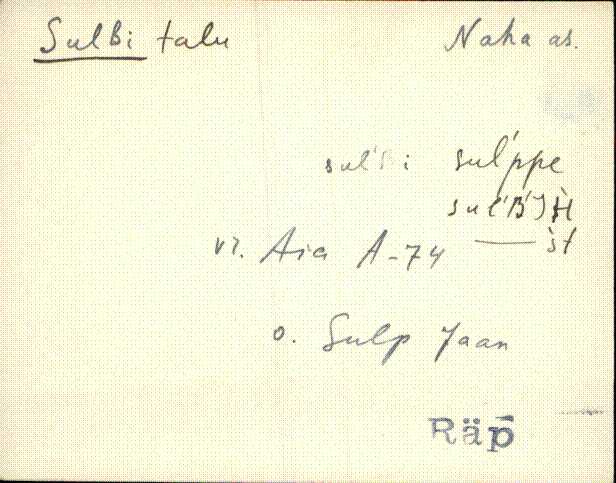 Sulbi talu Naha as.
sul'bi sul'ppe
sul'B'JH
vr. Aia A-74 — st
o. Sulp Jaan
Räp̄